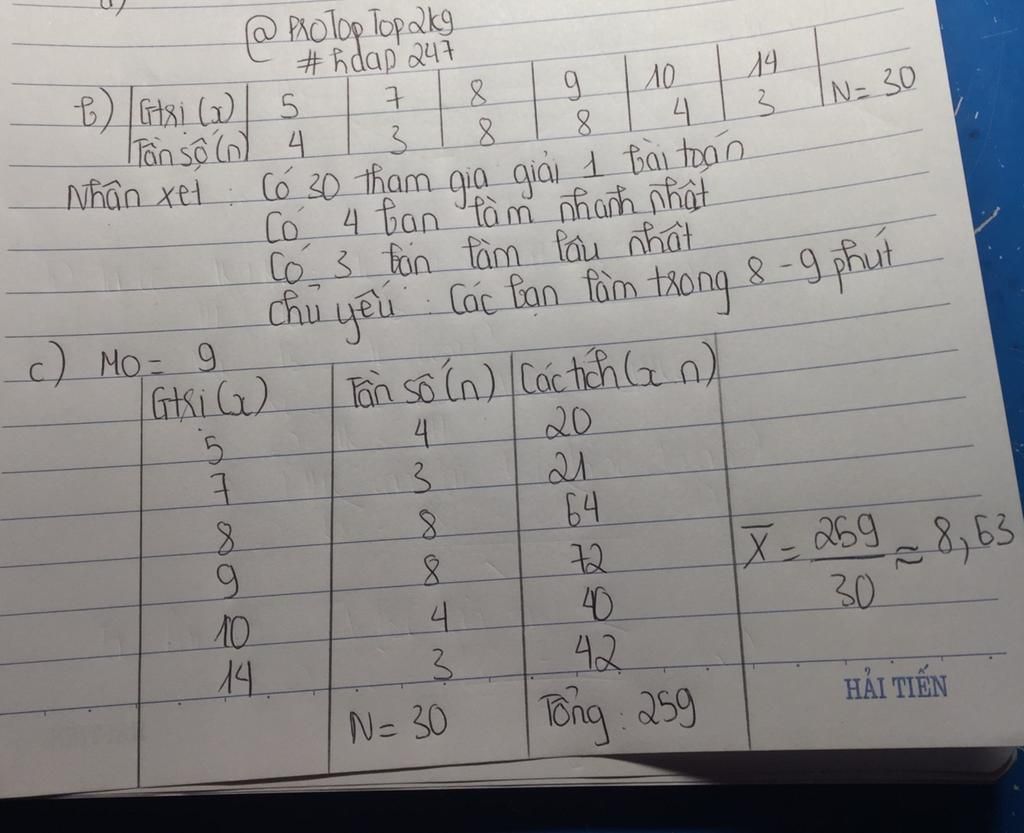 @ PROTOPTOP2kg
# hdap 247
b) Gtrị (x) 5 7 8 9 10 14 N = 30
Tần số (n) 4 3 8 8 4 3
Nhận xét : Có 30 tham gia giải 1 bài toán
Có 4 bạn làm nhanh nhất
Có 3 bạn làm lâu nhất
Chủ yếu : Các bạn làm trong 8 - 9 phút
c) M0 = 9
Gtrị (x) Tần số (n) Các tích (x n)
5 4 20
7 3 21
8 8 64
9 8 72
10 4 40
14 3 42
N = 30 Tổng : 259
X̄ = 259/30 ≈ 8,63
HẢI TIẾN